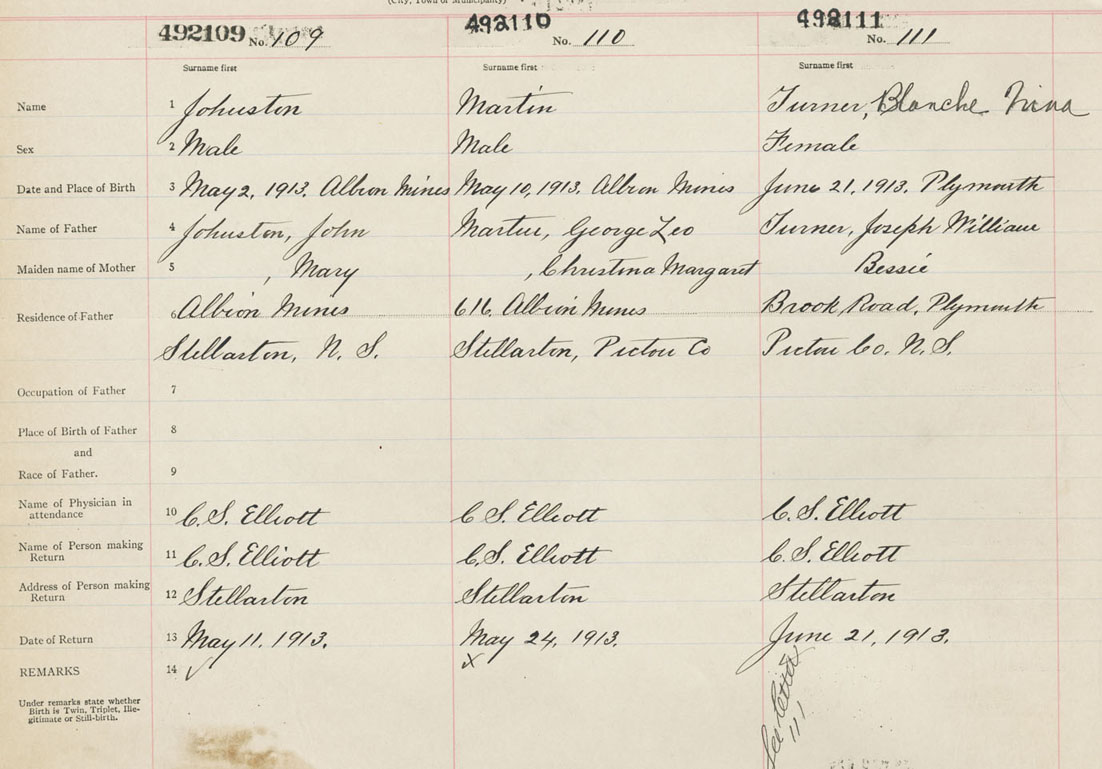 (City, Town or Municipality)
492109 No. 109 492110 No. 110 492111 No. 111
Surname first Surname first Surname first
Name 1 Johnston Martin Turner, Blanche
Sex 2 Male Male Female
Date and Place of Birth 3 May 2, 1913. Albion Mines May 10, 1913. Albion Mines June 21, 1913. Plymouth
Name of Father 4 Johnston, John Martin, George Leo Turner, Joseph William
Maiden name of Mother 5 , Mary , Christina Margaret Bessie
Residence of Father 6 Albion Mines 616. Albion Mines Brook Road, Plymouth
Stellarton, N. S. Stellarton, Pictou Co Pictou Co. N. S.
Occupation of Father 7
Place of Birth of Father 8
and
Race of Father. 9
Name of Physician in attendance 10 C. S. Elliott C S. Elliott C. S. Elliott
Name of Person making Return 11 C. S. Elliott C. S. Elliott C. S. Elliott
Address of Person making Return 12 Stellarton Stellarton Stellarton
Date of Return 13 May 11. 1913. May 24, 1913. June 21, 1913.
REMARKS 14 ✓ x
Under remarks state whether
Birth is Twin, Triplet, Ille-
gitimate or Still-birth.
See letter
111